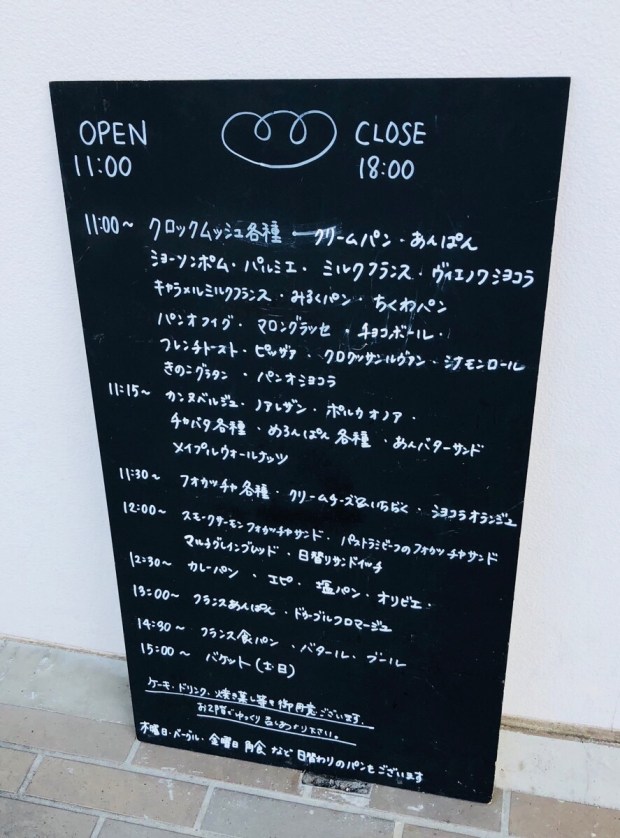 OPEN
11:00
CLOSE
18:00
11:00～ クロックムッシュ各種 クリームパン・あんぱん
ショーソンポム・パルミエ・ミルクフランス・ヴィエノワショコラ
キャラメルミルクフランス・みるくパン・ちくわパン
パンオフィグ・マロングラッセ・チョコボール・
フレンチトースト・ピッザァ・クロワッサンルヴァン・シナモンロール
きのこグラタン・パンオショコラ
11:15～ カンヌベルジュ・ノアレザン・ポルカオノア・
チャバタ各種・めろんぱん各種・あんバターサンド
メイプルウォールナッツ
11:30～ フォカッチャ各種・クリームチーズ&いちぢく・ショコラオランジュ
12:00～ スモークサーモンフォカッチャサンド・パストラミビーフのフォカッチャサンド
マルチグレインブレッド・日替りサンドイッチ
12:30～ カレーパン・エピ・塩パン・オリビエ・
13:00～ フランスあんぱん・ドゥーブルフロマージュ
14:30～ フランス食パン・バタール・ブール
15:00～ バケット(土・日)
ケーキ・ドリンク・焼き菓子等も御用意ございます。
お2階でゆっくり召しあがり下さい。
木曜日・ベーグル・金曜日 角食 など日替わりのパンもございます